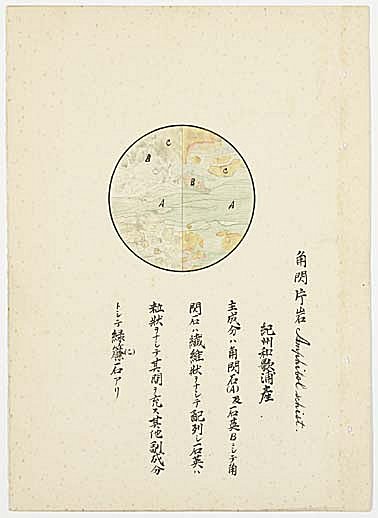 角閃片岩 Amphibol schist.
紀州和歌浦産
主成分ハ角閃石(A)及石英Bニシテ角
閃石ハ纎維狀ヲナシテ配列シ石英ハ
粒狀ヲナシテ其間ヲ充ス其他副成分
トシテ緑簾石(C)アリ
C
B
A
C
B
A